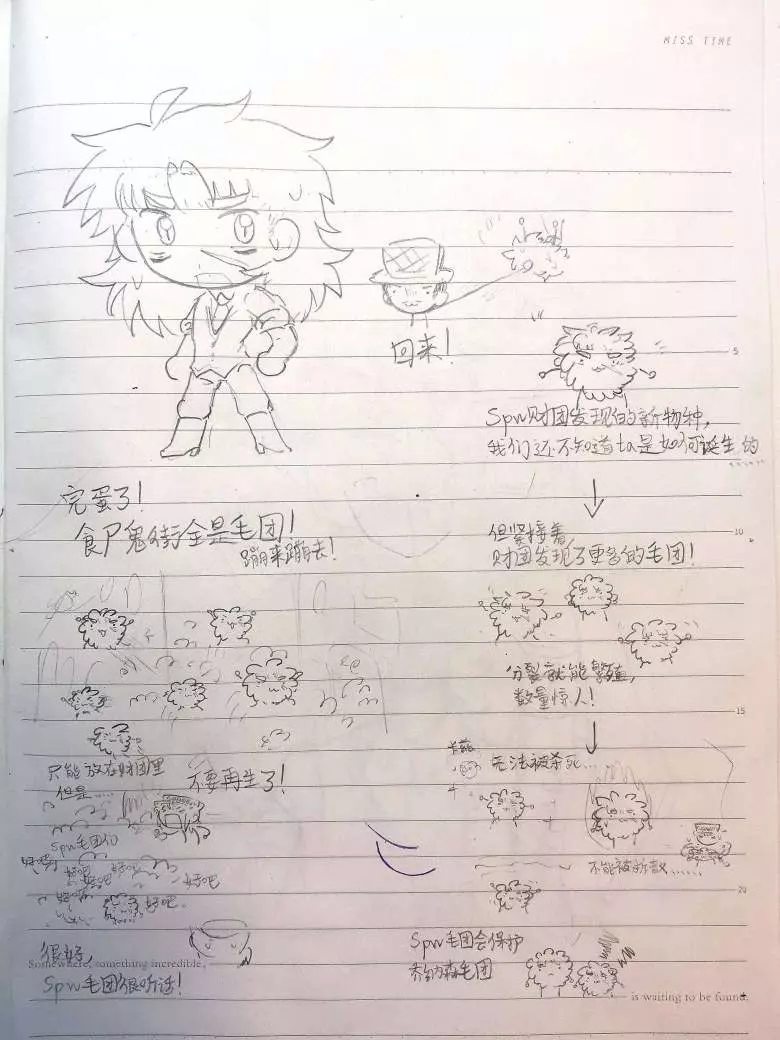 MISS TIME
回来！
5
Spw财团发现的新物种，
我们还不知道ta是如何诞生的
......
完蛋了！
食尸鬼街全是毛团！
蹦来蹦去！
10
但紧接着，
财团发现了更多的毛团！
分裂就能繁殖，
数量惊人！
15
只能放在财团里
但是……
不要再生了！
无法被杀死……
Spw毛团们
好吧
好吧
好吧
好吧
好吧
好吧
好吧
不能被拆散……
20
很好，
Somewhere, something incredible,
Spw毛团很听话！
Spw毛团会保护
乔纳森毛团
is waiting to be found.